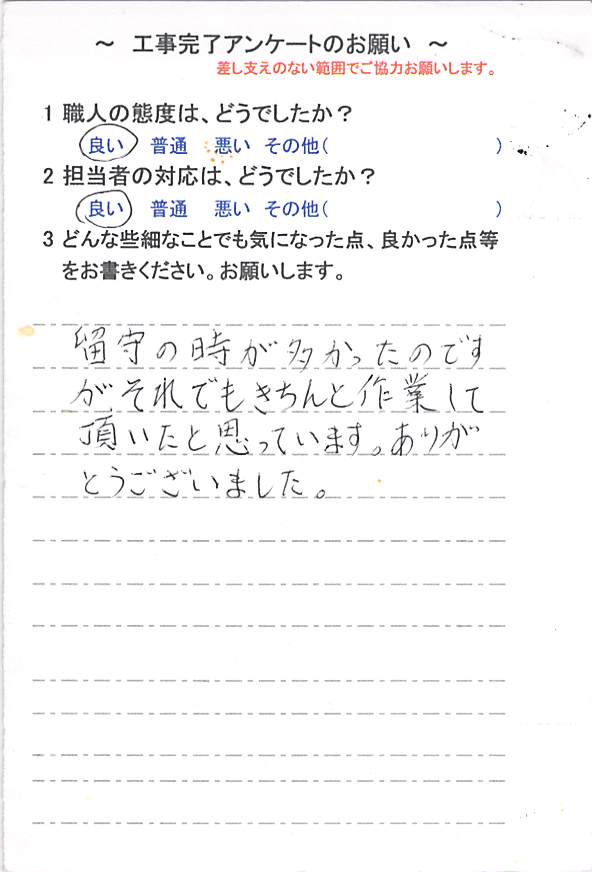 ～ 工事完了アンケートのお願い ～
差し支えのない範囲でご協力お願いします。
1 職人の態度は、どうでしたか？
良い 普通 悪い その他( )
2 担当者の対応は、どうでしたか？
良い 普通 悪い その他( )
3 どんな些細なことでも気になった点、良かった点等
をお書きください。お願いします。
留守の時が多かったのです
がそれでもきちんと作業して
頂いたと思っています。ありが
とうございました。